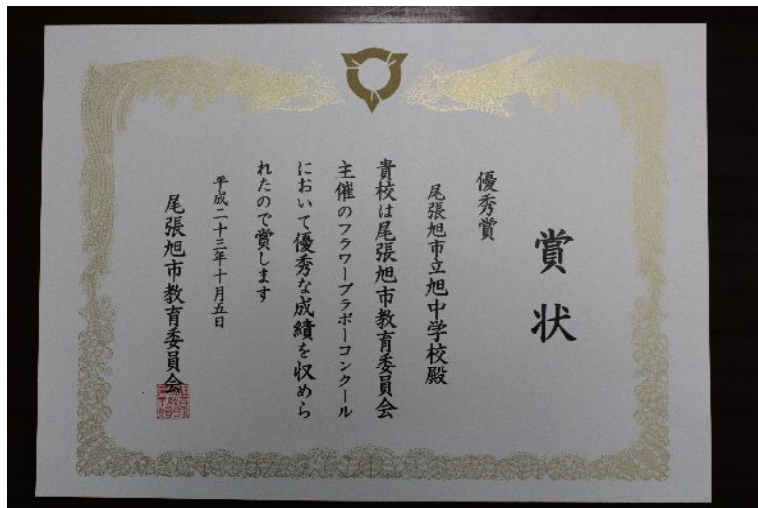 賞状
優秀賞
尾張旭市立旭中学校殿
貴校は尾張旭市教育委員会
主催のフラワーブラボーコンクール
において優秀な成績を収めら
れたので賞します
平成二十三年十月五日
尾張旭市教育委員会